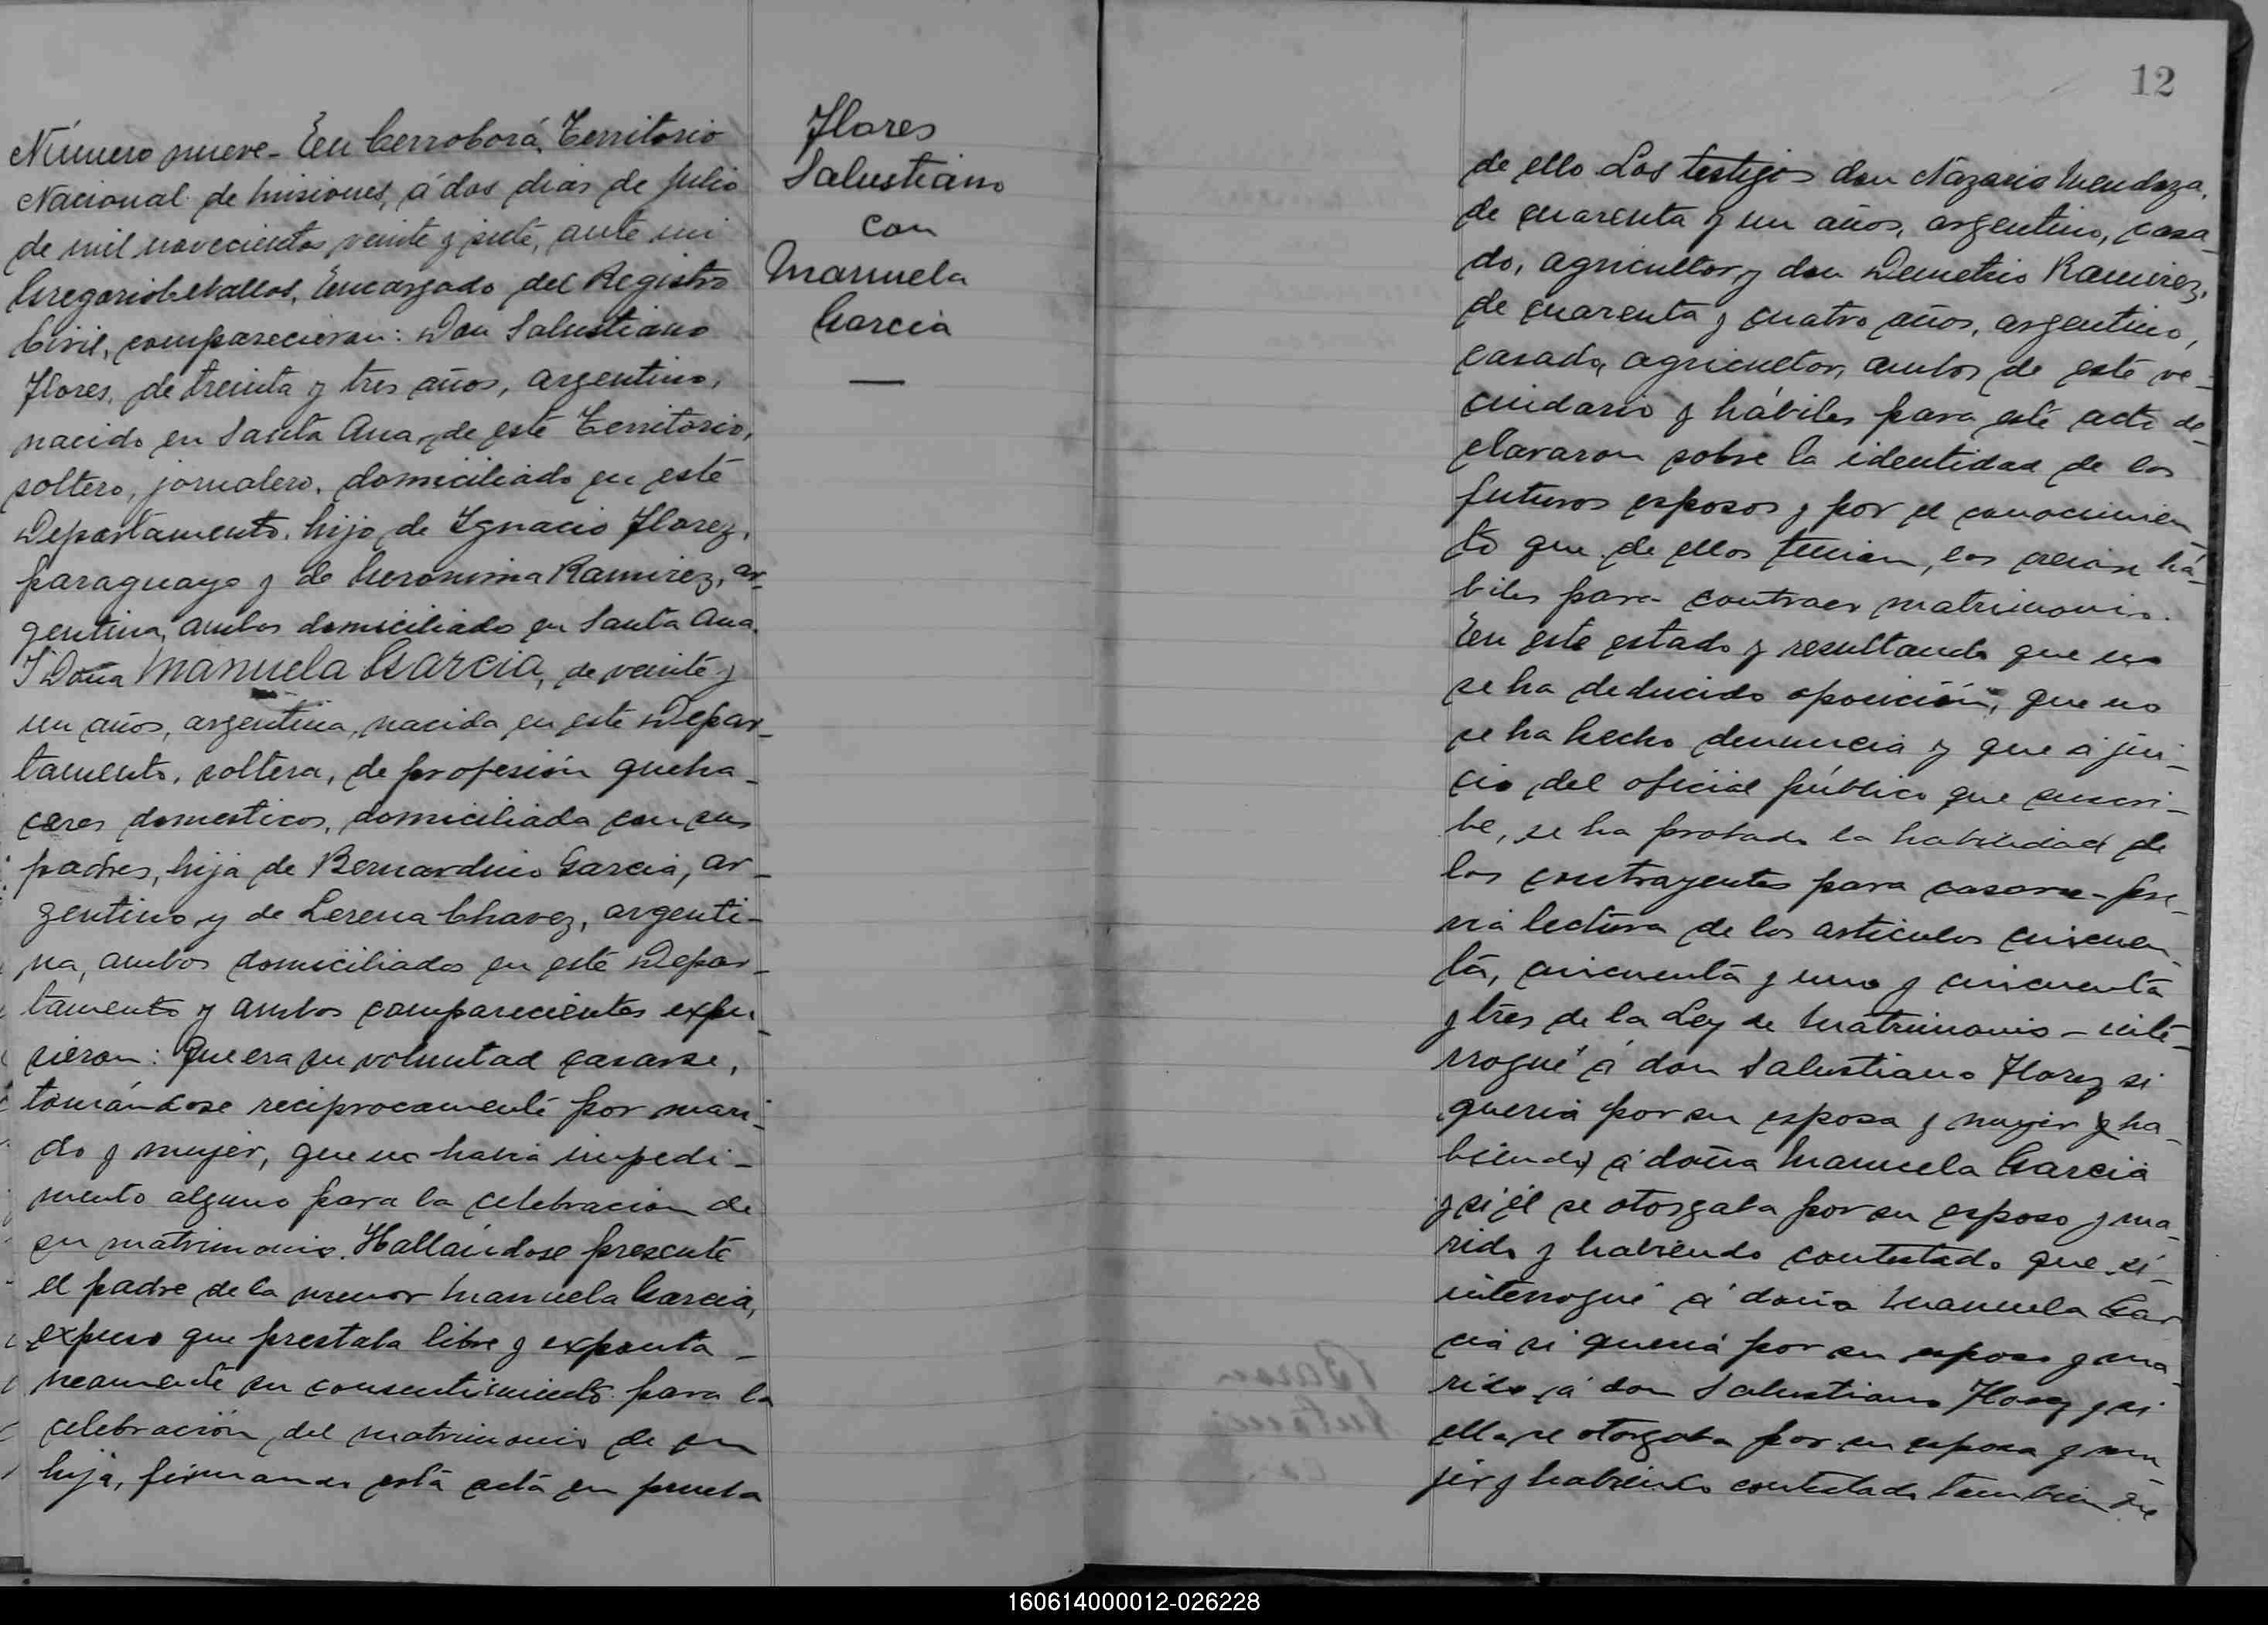 Número nueve- En Cerroborá, Territorio
Nacional de Misiones, á dos dias de Julio
de mil novecientos veinte y siete, ante mi
Gregorio Cevallos, Encargado del Registro
Civil, comparecieron: Don Salustiano
Flores, de treinta y tres años, argentino,
nacido en Santa Ana, de este Territorio,
soltero, jornalero, domiciliado en este
Departamento, hijo de Ignacio Florez,
paraguayo y de Geronima Ramirez, ar-
gentina, ambos domiciliado en Santa Ana.
Y Doña Manuela Garcia, de veinte y
un años, argentina, nacida en este Depar-
tamento, soltera, de profesión queha-
ceres domesticos, domiciliada con sus
padres, hija de Bernardino Garcia, ar-
gentino, y de Lerena Chavez, argenti-
na, ambos domiciliados en este Depar-
tamento y ambos comparecientes expu-
sieron: Que era su voluntad casarse,
tomándose reciprocamente por mari-
do y mujer, que no habia impedi-
mento alguno para la celebracion de
su matrimonio. Hallándose presente
el padre de la menor Manuela Garcia,
expuso que prestaba libre y exponta-
neamente su consentimiento para la
celebración del matrimonio de su
hija, firmando esta acta en prueba
Flores
Salustiano
con
Manuela
Garcia
—
12
de ello Los testigos don Nazario Mendoza,
de cuarenta y un años, argentino, casa-
do, agricultor y don Demetrio Ramirez,
de cuarenta y cuatro años, argentino,
casado, agricultor, ambos de este ve-
cindario y hábiles para este acto de-
clararon sobre la identidad de los
futuros esposos y por el conocimien-
to que de ellos tenian, los creian há-
biles para contraer matrimonio.
En este estado y resultando que no
se ha deducido oposición, que no
se ha hecho denuncia y que á jui-
cio del oficial público que suscri-
be, se ha probado la habilidad de
los contrayentes para casarse-pre-
via lectura de los articulos cincuen-
ta, cincuenta y uno y cincuenta
y tres de la Ley de Matrimonio - inte-
rrogué á don Salustiano Florez si
queria por su esposa y mujer y ha-
biendo) á doña Manuela Garcia
y si él se otorgaba por su esposo y ma-
rido y habiendo contestado que sí-
interrogué á doña Manuela Gar-
cia si queria por su esposo y ma-
rido á don Salustiano Florez y si
ella se otorgaba por su esposa y mu-
jer y habiendo contestado tambien que
160614000012-026228